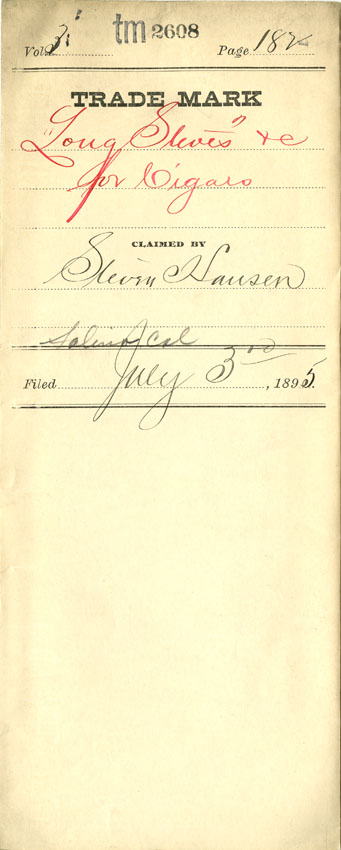 tm 2608
Vol. 3 Page 182
TRADE MARK
"Long Steves" &c
for Cigars
CLAIMED BY
Steven Hansen
Salinas Cal
Filed July 3rd, 1895.